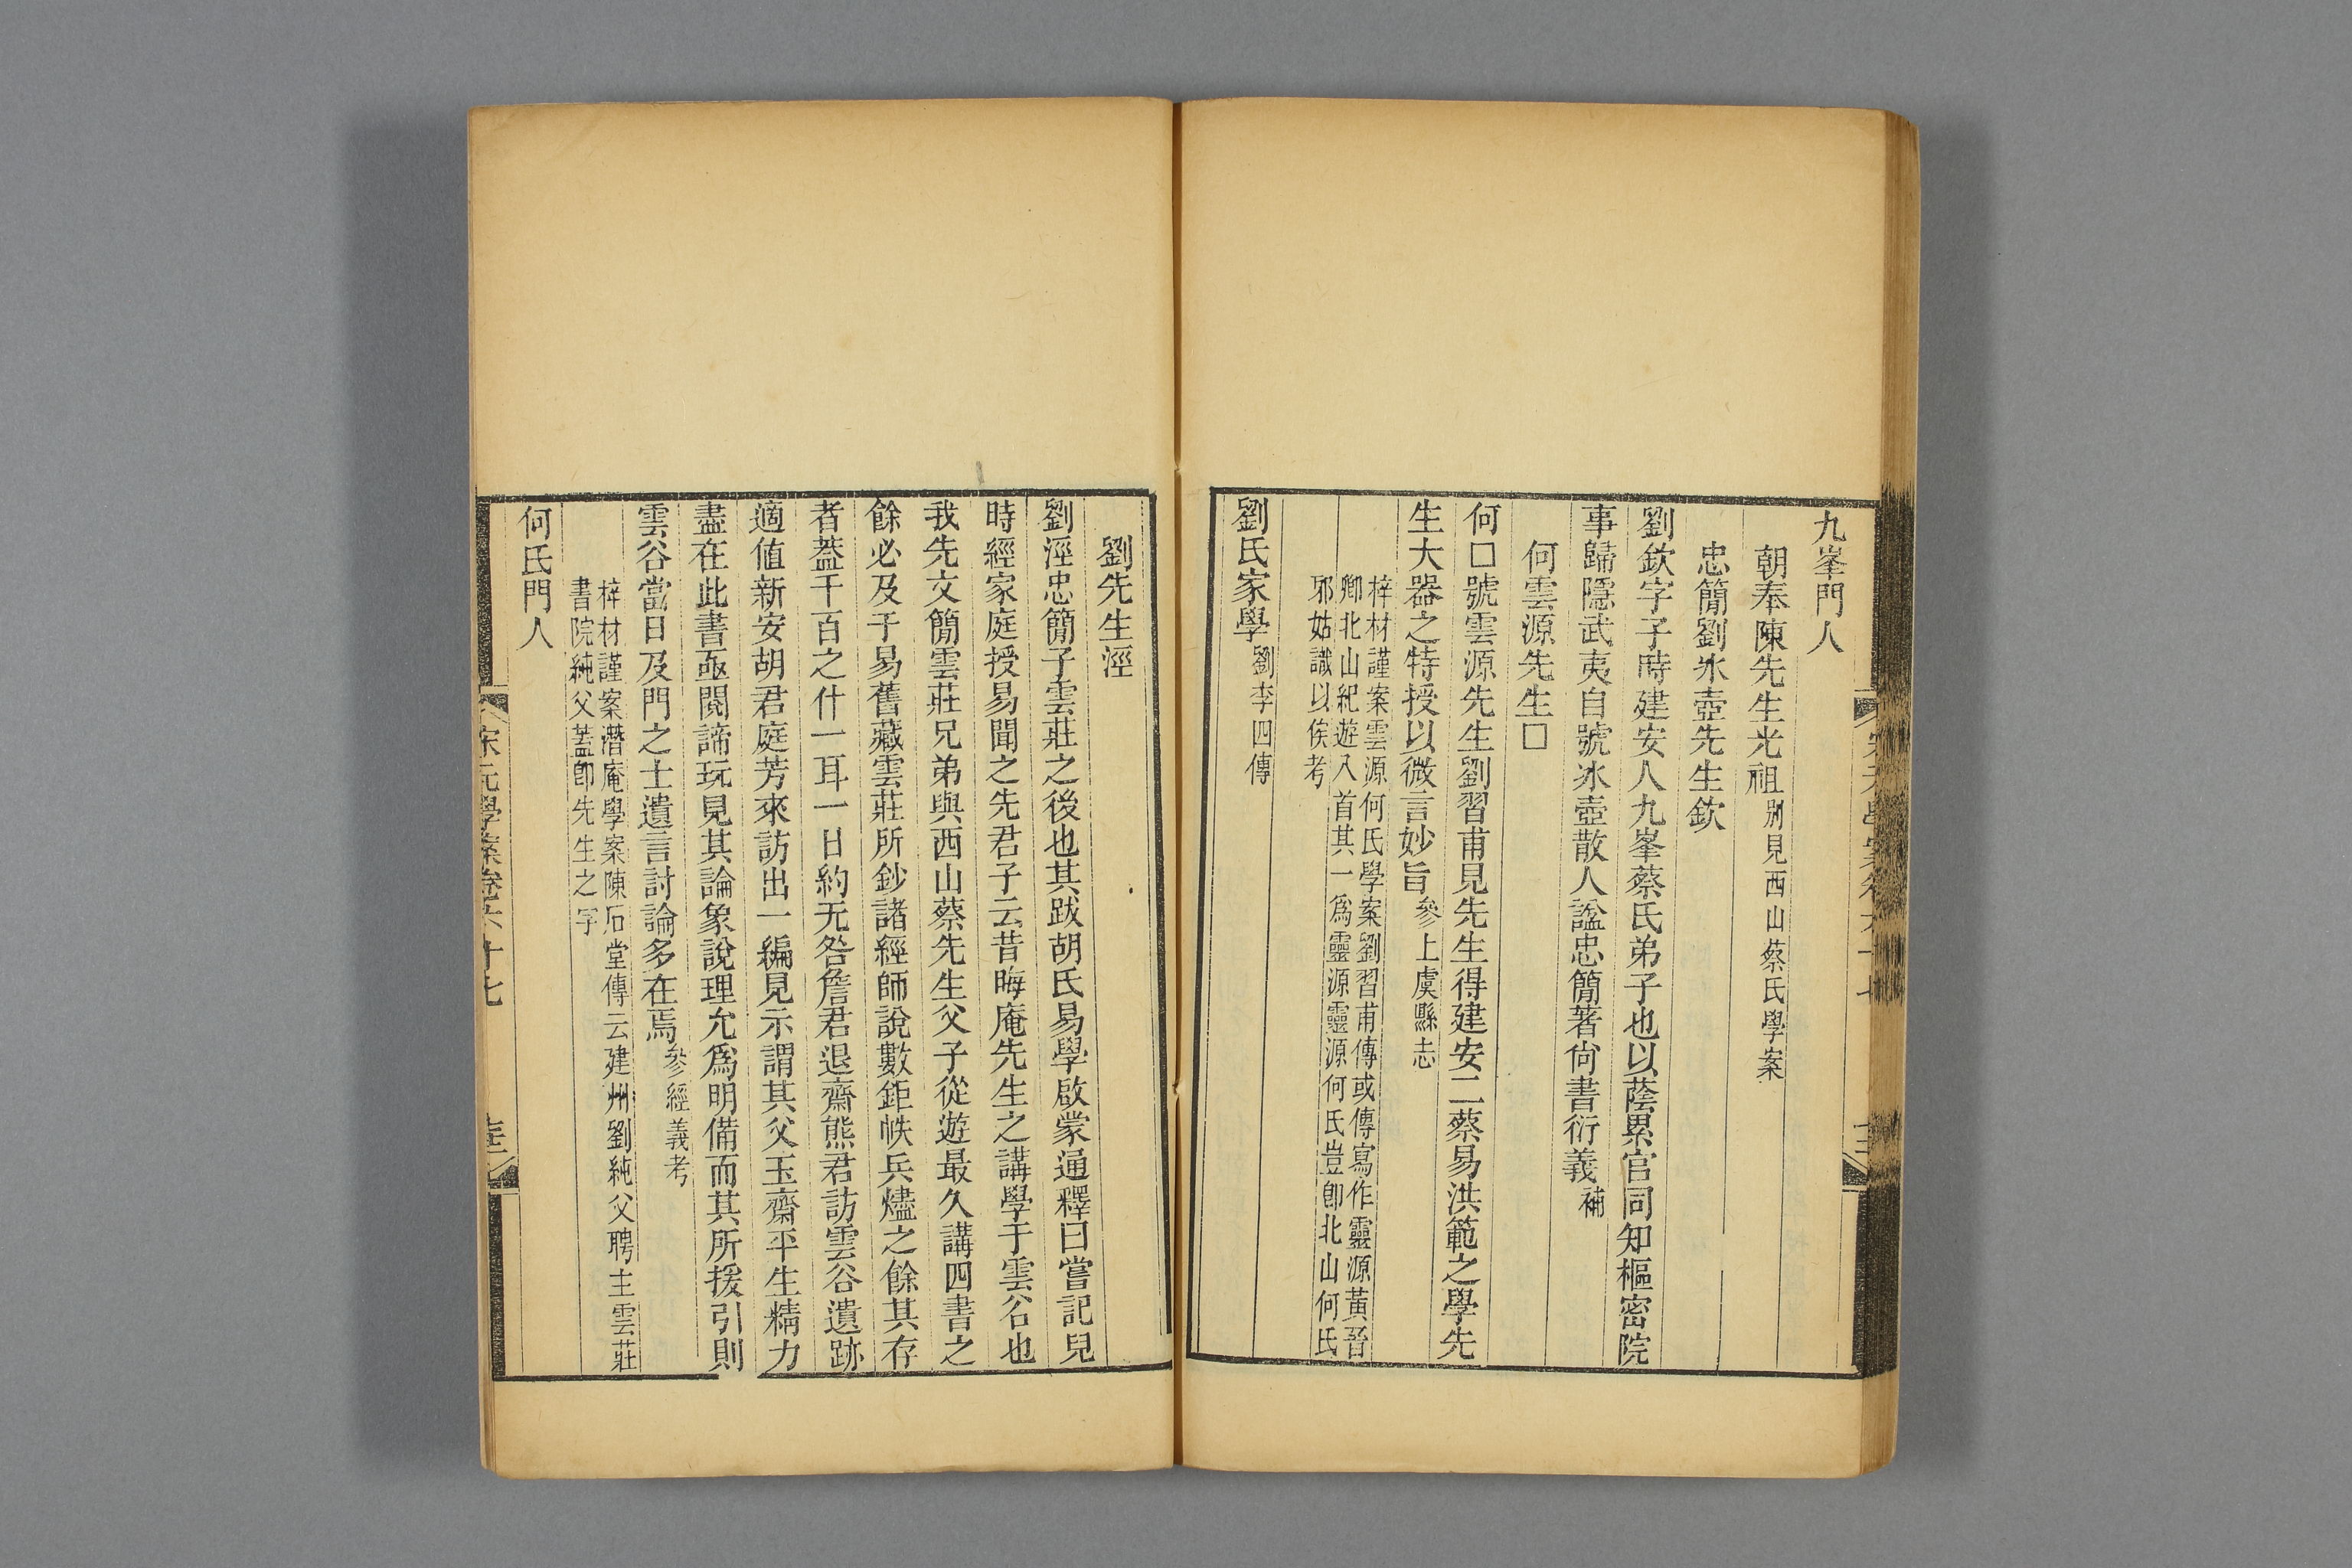 九峯門人
朝奉陳先生光祖別見西山蔡氏學案
忠簡劉氷壺先生欽
劉欽字子時建安人九峯蔡氏弟子也以蔭累官同知樞密院
事歸隱武夷自號氷壺散人諡忠簡著尙書衍義補
何雲源先生□
何□號雲源先生劉習甫見先生得建安二蔡易洪範之學先
生大器之特授以微言妙旨參上虞縣志
梓材謹案雲源何氏學案劉習甫傳或傳寫作靈源黃晉
卿北山紀遊八首其一爲靈源靈源何氏豈卽北山何氏
邪姑識以俟考
劉氏家學劉李四傳
劉先生涇
劉涇忠簡子雲莊之後也其跋胡氏易學啟蒙通釋曰嘗記兒
時經家庭授易聞之先君子云昔晦庵先生之講學于雲谷也
我先文簡雲莊兄弟與西山蔡先生父子從遊最久講四書之
餘必及于易舊藏雲莊所鈔諸經師說數鉅帙兵燼之餘其存
者葢千百之什一耳一日約无咎詹君退齋熊君訪雲谷遺跡
適値新安胡君庭芳來訪出一編見示謂其父玉齋平生精力
盡在此書亟閱諦玩見其論象說理允爲明備而其所援引則
雲谷當日及門之士遺言討論多在焉參經義考
梓材謹案潛庵學案陳石堂傳云建州劉純父聘主雲莊
書院純父葢卽先生之字
何氏門人
宋元學案卷六十七